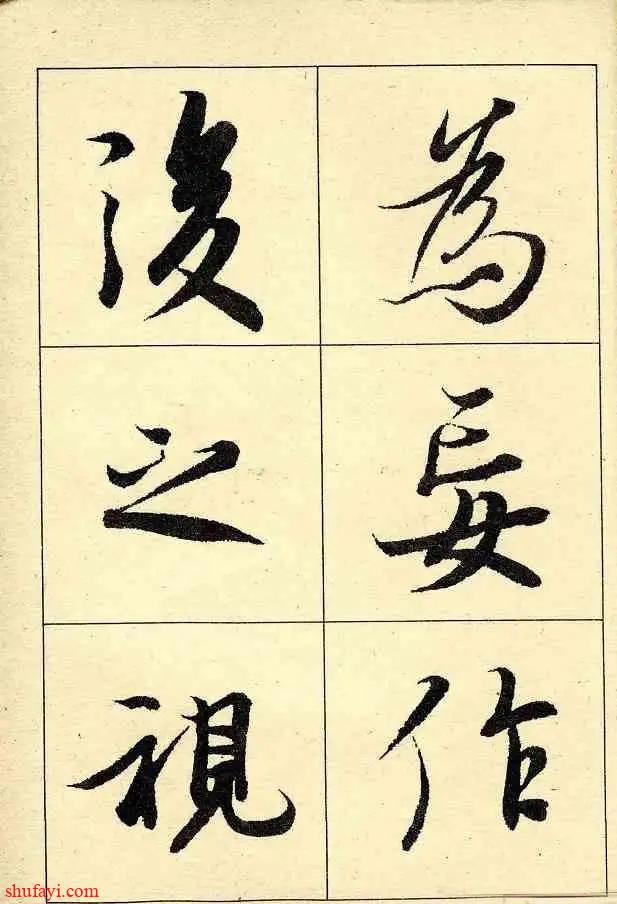 為妄作
後之視
shufayi.com